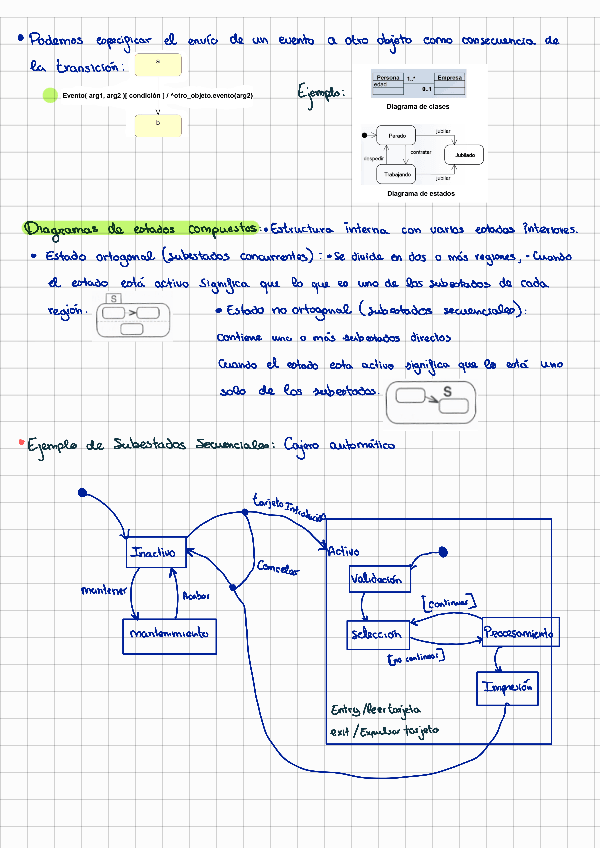 • Podemos especificar el envío de un evento a otro objeto como consecuencia de
la transición:
a
Evento( arg1, arg2 )[ condición ] / ^otro_objeto.evento(arg2)
b
Ejemplo:
Persona 1..* Empresa
edad 0..1
Diagrama de clases
Parado
jubilar
contratar
despedir
Jubilado
Trabajando
jubilar
Diagrama de estados
Diagramas de estados compuestos: • Estructura interna con varios estados interiores.
• Estado ortogonal (subestados concurrentes): • Se divide en dos o más regiones, - Cuando
el estado está activo significa que lo que es uno de los subestados de cada
región.
S
• Estado no ortogonal (subestados secuenciales):
contiene uno o más subestados directos
Cuando el estado esta activo significa que lo está uno
solo de los subestados.
S
• Ejemplo de Subestados Secuenciales: Cajero automático
tarjeta Introducida
Inactivo
Cancelar
Activo
Validación
mantener
Acabar
[continuar]
mantenimiento
selección
Procesamiento
[no continuar]
Impresión
Entry/leer tarjeta
exit/Expulsar tarjeta